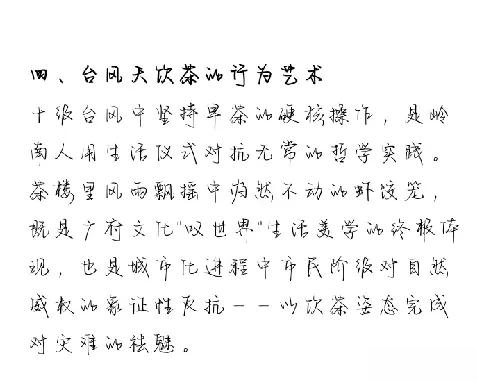 四、台风天饮茶的行为艺术
十级台风中坚持早茶的硬核操作，是岭
南人用生活仪式对抗无常的哲学实践。
茶楼里风雨飘摇中岿然不动的虾饺笼，
既是广府文化"叹世界"生活美学的终极体
现，也是城市化进程中市民阶级对自然
威权的象征性反抗——以饮茶姿态完成
对灾难的祛魅。